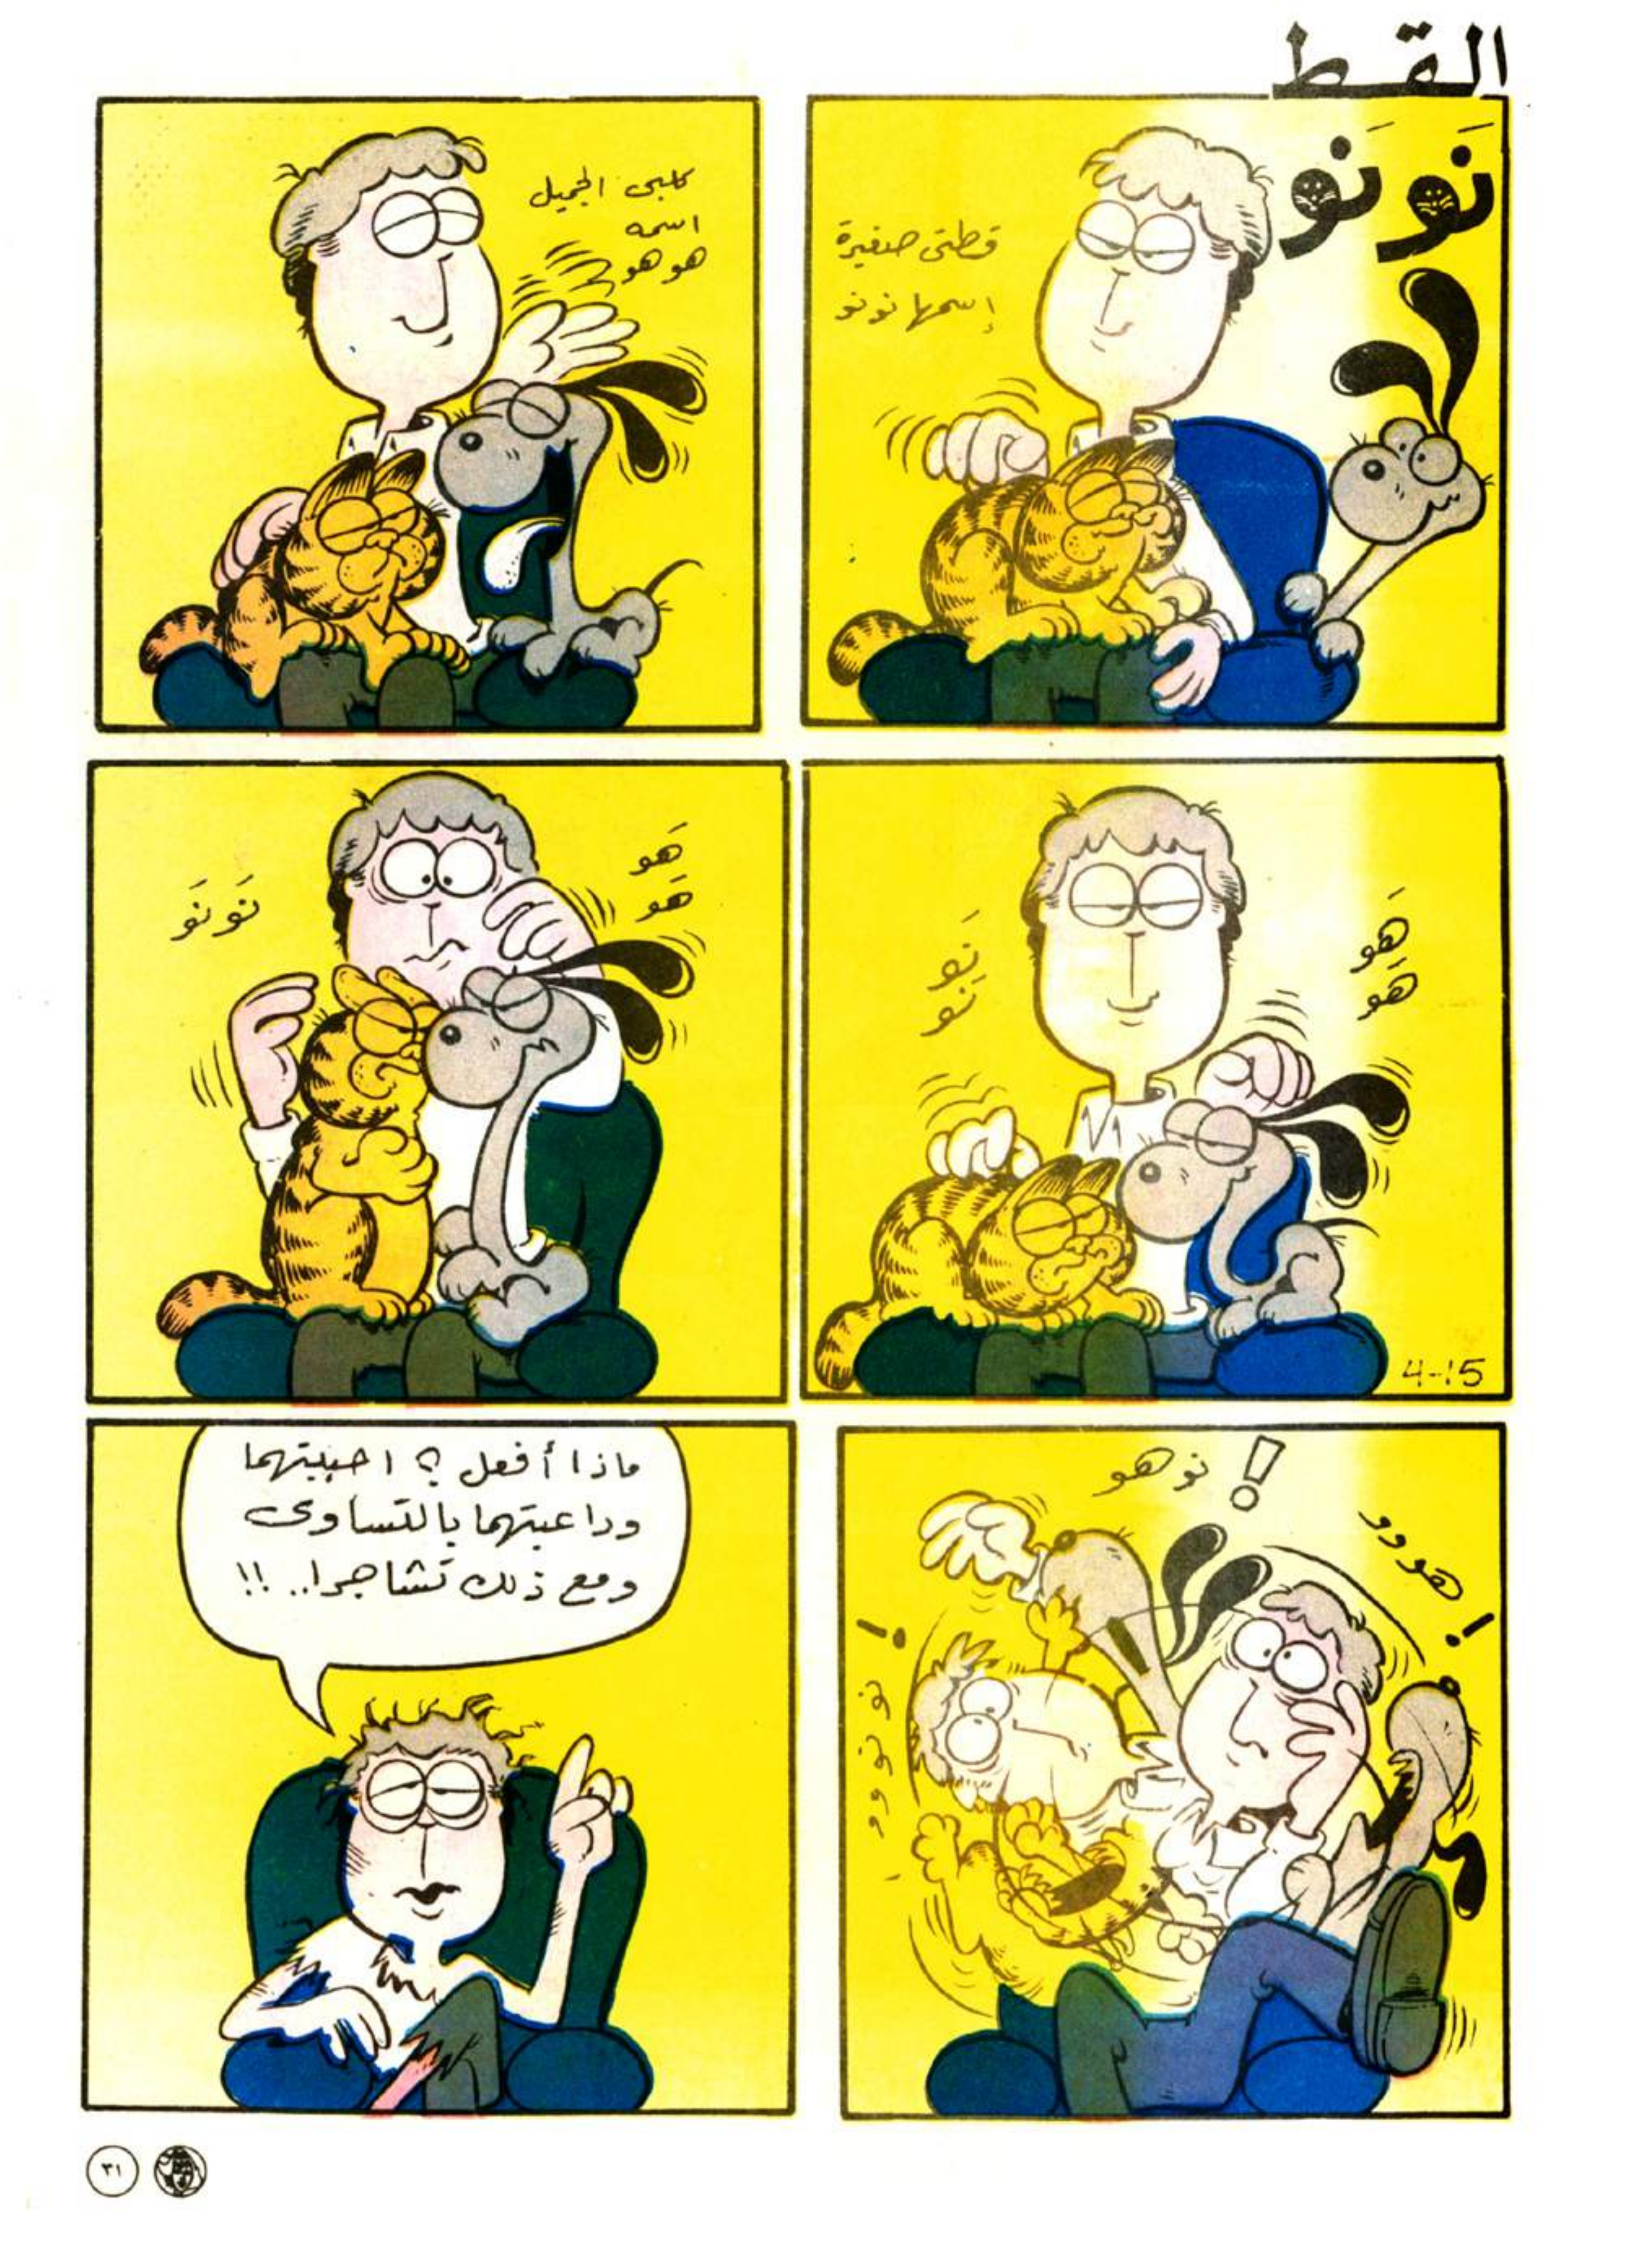 القط
نَونَو
قطتى صغيرة
إسمها نونو
كلبى الجميل
اسمه
هوهو
هَو
هَو
نَو
نَو
4-15
هَو
هَو
نَونَو
نوهو !
هوووو !
نونوووو !
ماذا أفعل ؟ احببتهما
وداعبتهما بالتساوى
ومع ذلك تشاجرا.. !!
٣١